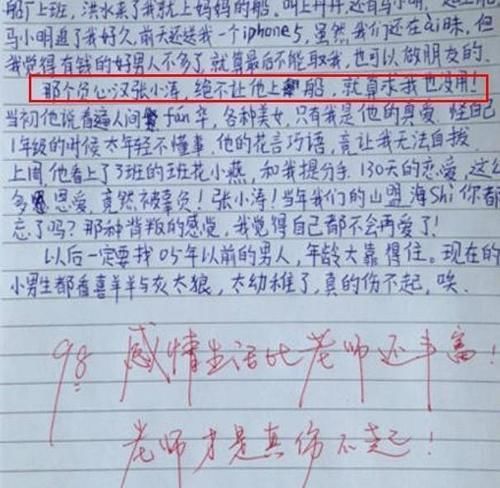 船厂上班，洪水来了我就上妈妈的船。叫上丹丹，还有马小明，
马小明追了我好久，前天还送我一个iphone5，虽然我们还在ai昧，但
我觉得有钱的好男人不多了，就算最后不能取我，也可以做朋友的．
那个负心汉张小涛，绝不让他上船，就算求我也没用！
当初他说看遍人间繁fán华，各种美女，只有我是他的真爱．怪自己
1年级的时候太年轻不懂事．他的花言巧语，竟让我无法自拔．
上周，他看上了3班的班花小燕，和我提分手．130天的恋爱，这么
多恩爱，竟然被辜负！张小涛！当年我们的山盟海Shi你都
忘了吗？那种背叛的感觉，我觉得自己都不会再爱了！
以后一定要找05年以前的男人，年龄大靠得住．现在的
小男生都看喜羊羊与灰太狼，太幼稚了，真的伤不起，唉．
98 感情生活比老师还丰富！
老师才是真伤不起！